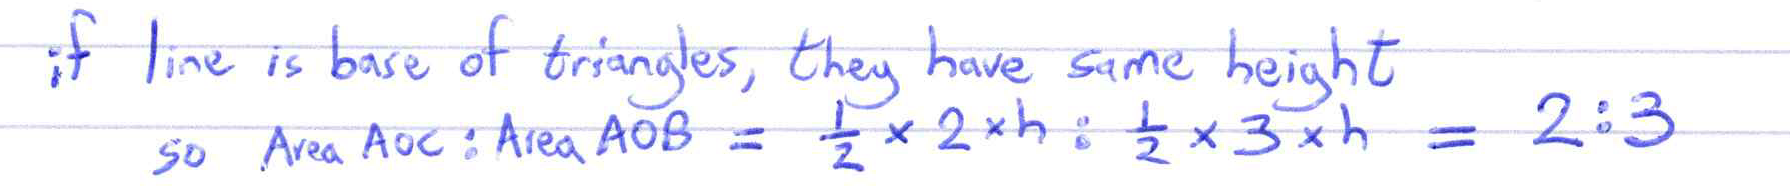 if line is base of triangles, they have same height
so Area AOC : Area AOB = 1/2 × 2 × h : 1/2 × 3 × h = 2:3